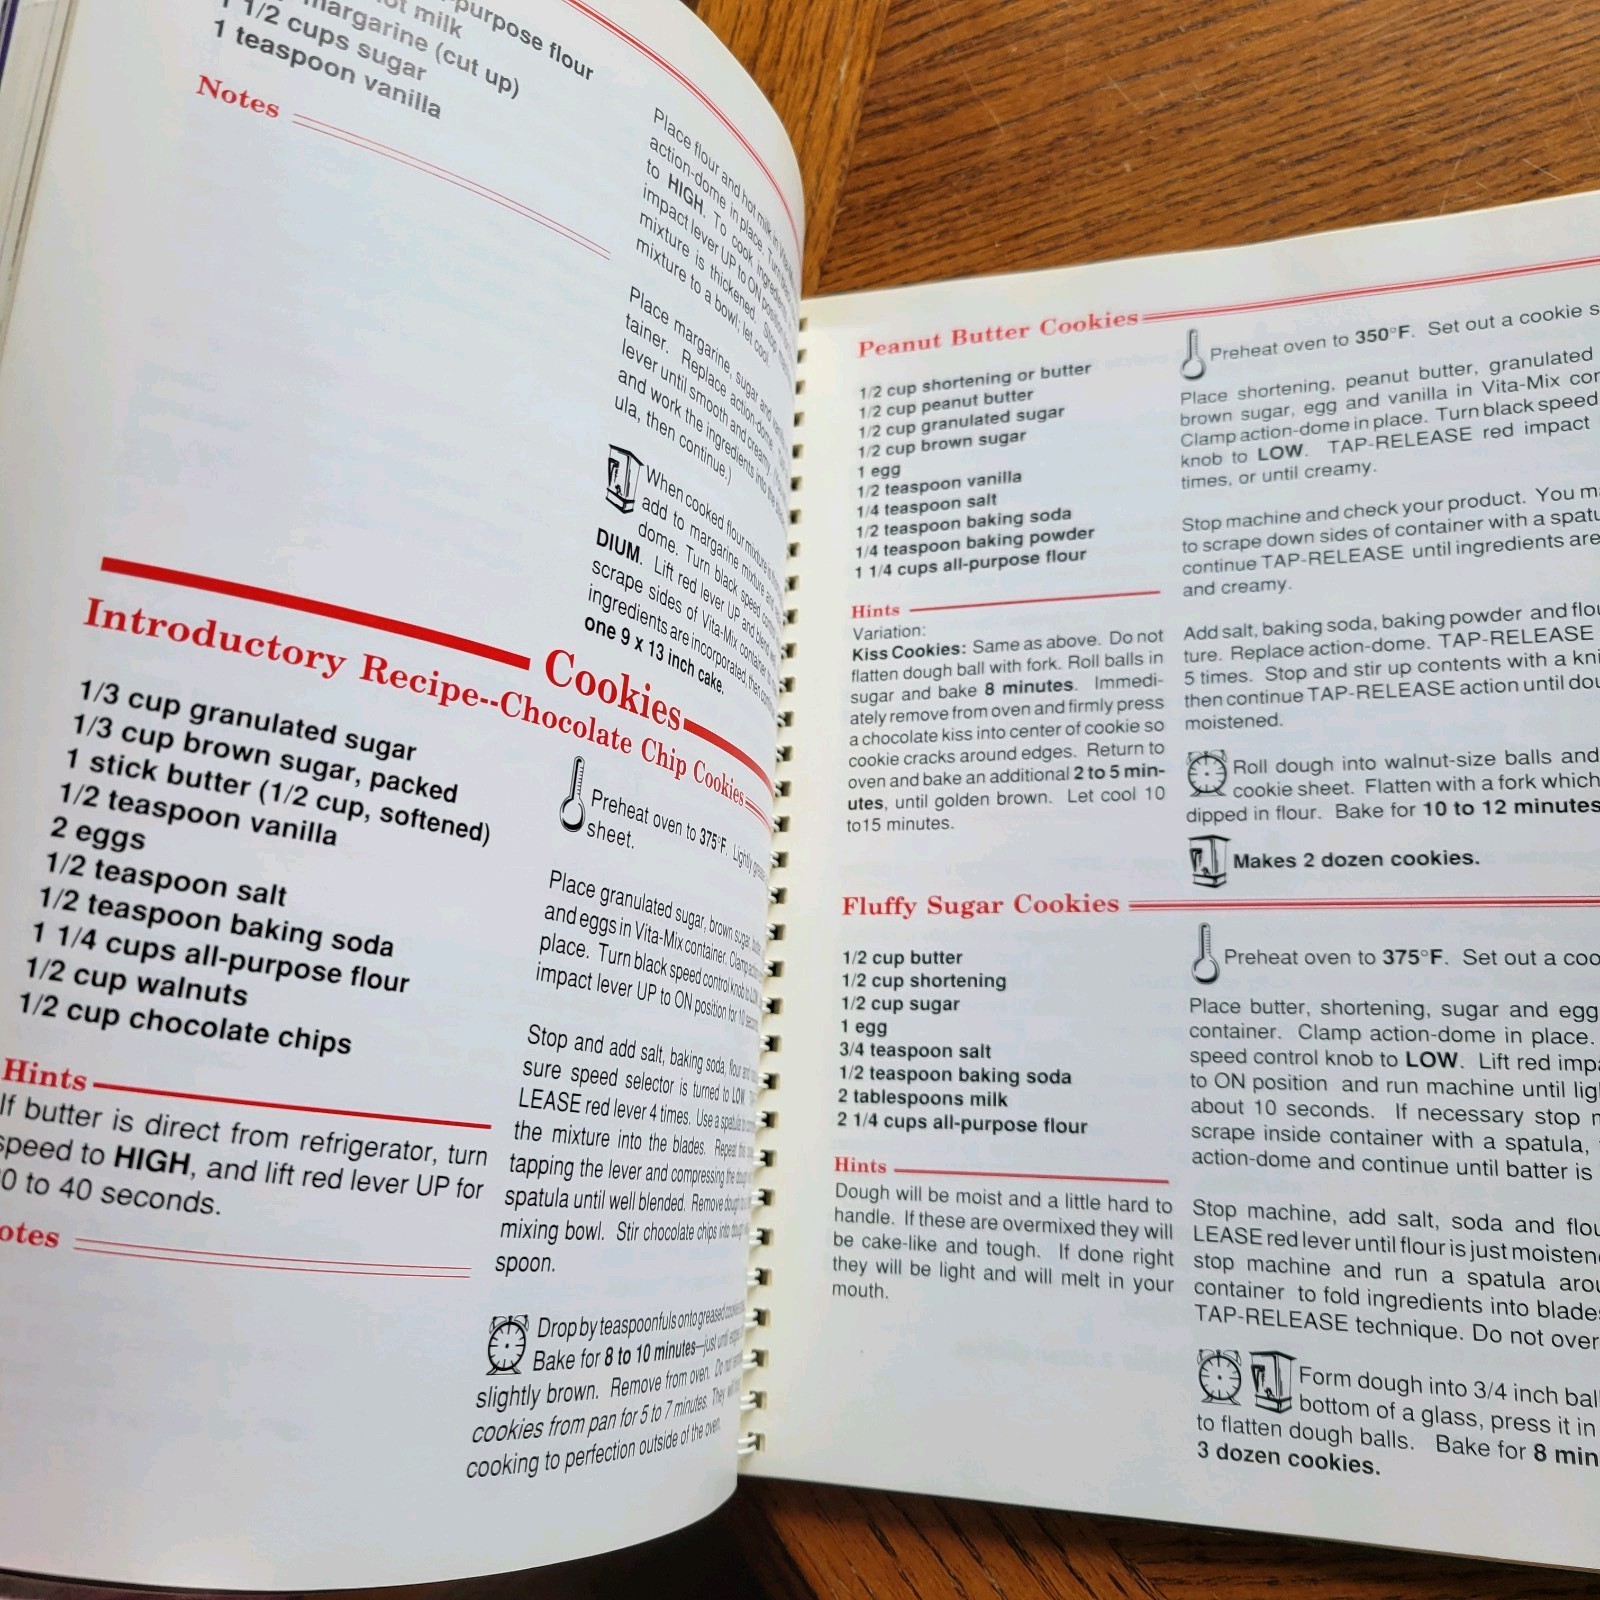 -purpose flour
hot milk
margarine (cut up)
1 1/2 cups sugar
1 teaspoon vanilla
Notes
Place flour and hot milk in
action-dome in place. Turn
to HIGH. To cook
impact lever UP to ON position
mixture is thickened. Stop
mixture to a bowl; let cool.
Place margarine, sugar and
tainer. Replace action-dome.
lever until smooth and creamy.
and work the ingredients into the
ula, then continue.)
When cooked flour mixture is
add to margarine mixture and
dome. Turn black speed control
DIUM. Lift red lever UP and blend
scrape sides of Vita-Mix container
ingredients are incorporated, then
one 9 x 13 inch cake.
Cookies
Introductory Recipe--Chocolate Chip Cookies
1/3 cup granulated sugar
1/3 cup brown sugar, packed
1 stick butter (1/2 cup, softened)
1/2 teaspoon vanilla
2 eggs
1/2 teaspoon salt
1/2 teaspoon baking soda
1 1/4 cups all-purpose flour
1/2 cup walnuts
1/2 cup chocolate chips
Hints
If butter is direct from refrigerator, turn
speed to HIGH, and lift red lever UP for
0 to 40 seconds.
otes
Preheat oven to 375°F. Lightly
sheet.
Place granulated sugar, brown sugar,
and eggs in Vita-Mix container. Clamp
place. Turn black speed control knob to LOW.
impact lever UP to ON position for 10
Stop and add salt, baking soda, flour and
sure speed selector is turned to LOW.
LEASE red lever 4 times. Use a spatula to
the mixture into the blades. Repeat
tapping the lever and compressing the dough
spatula until well blended. Remove dough
mixing bowl. Stir chocolate chips into dough
spoon.
Drop by teaspoonfuls onto greased
Bake for 8 to 10 minutes—just until
slightly brown. Remove from oven. Do not
cookies from pan for 5 to 7 minutes. They
cooking to perfection outside of the oven.
Peanut Butter Cookies
1/2 cup shortening or butter
1/2 cup peanut butter
1/2 cup granulated sugar
1/2 cup brown sugar
1 egg
1/2 teaspoon vanilla
1/4 teaspoon salt
1/2 teaspoon baking soda
1/4 teaspoon baking powder
1 1/4 cups all-purpose flour
Hints
Variation:
Kiss Cookies: Same as above. Do not
flatten dough ball with fork. Roll balls in
sugar and bake 8 minutes. Immedi-
ately remove from oven and firmly press
a chocolate kiss into center of cookie so
cookie cracks around edges. Return to
oven and bake an additional 2 to 5 min-
utes, until golden brown. Let cool 10
to15 minutes.
Preheat oven to 350°F. Set out a cookie s
Place shortening, peanut butter, granulated
brown sugar, egg and vanilla in Vita-Mix con
Clamp action-dome in place. Turn black speed
knob to LOW. TAP-RELEASE red impact
times, or until creamy.
Stop machine and check your product. You ma
to scrape down sides of container with a spatu
continue TAP-RELEASE until ingredients are
and creamy.
Add salt, baking soda, baking powder and flou
ture. Replace action-dome. TAP-RELEASE
5 times. Stop and stir up contents with a kni
then continue TAP-RELEASE action until dou
moistened.
Roll dough into walnut-size balls and
cookie sheet. Flatten with a fork which
dipped in flour. Bake for 10 to 12 minutes
Makes 2 dozen cookies.
Fluffy Sugar Cookies
1/2 cup butter
1/2 cup shortening
1/2 cup sugar
1 egg
3/4 teaspoon salt
1/2 teaspoon baking soda
2 tablespoons milk
2 1/4 cups all-purpose flour
Hints
Dough will be moist and a little hard to
handle. If these are overmixed they will
be cake-like and tough. If done right
they will be light and will melt in your
mouth.
Preheat oven to 375°F. Set out a coo
Place butter, shortening, sugar and egg
container. Clamp action-dome in place.
speed control knob to LOW. Lift red impa
to ON position and run machine until lig
about 10 seconds. If necessary stop m
scrape inside container with a spatula,
action-dome and continue until batter is
Stop machine, add salt, soda and flou
LEASE red lever until flour is just moistene
stop machine and run a spatula arou
container to fold ingredients into blades
TAP-RELEASE technique. Do not over
Form dough into 3/4 inch ball
bottom of a glass, press it in
to flatten dough balls. Bake for 8 min
3 dozen cookies.